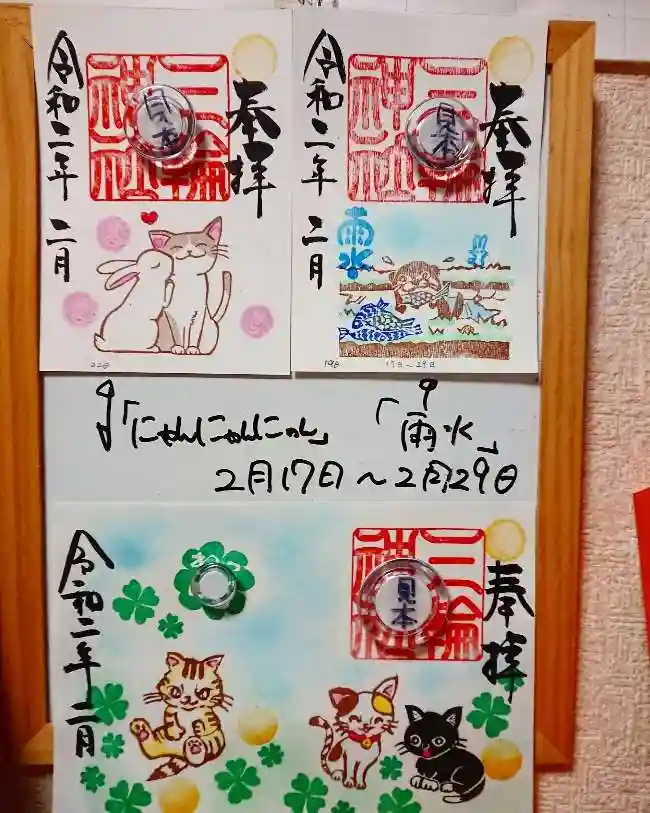 奉拝
三輪神社
見本
令和二年 二月
22日
奉拝
三輪神社
見本
雨水
令和二年 二月
19日
17日~29日
「にゃんにゃんにゃん」
「雨水」
2月17日~2月29日
奉拝
三輪神社
見本
令和二年 二月